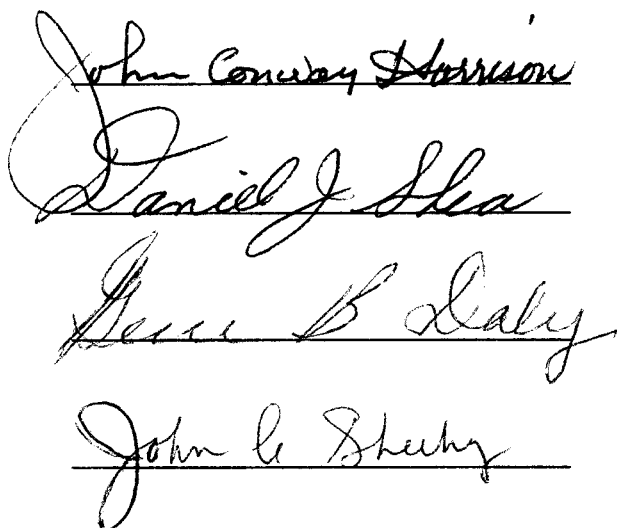 John Conway Harrison
Daniel J Shea
Gene B Daly
John C Sheehy